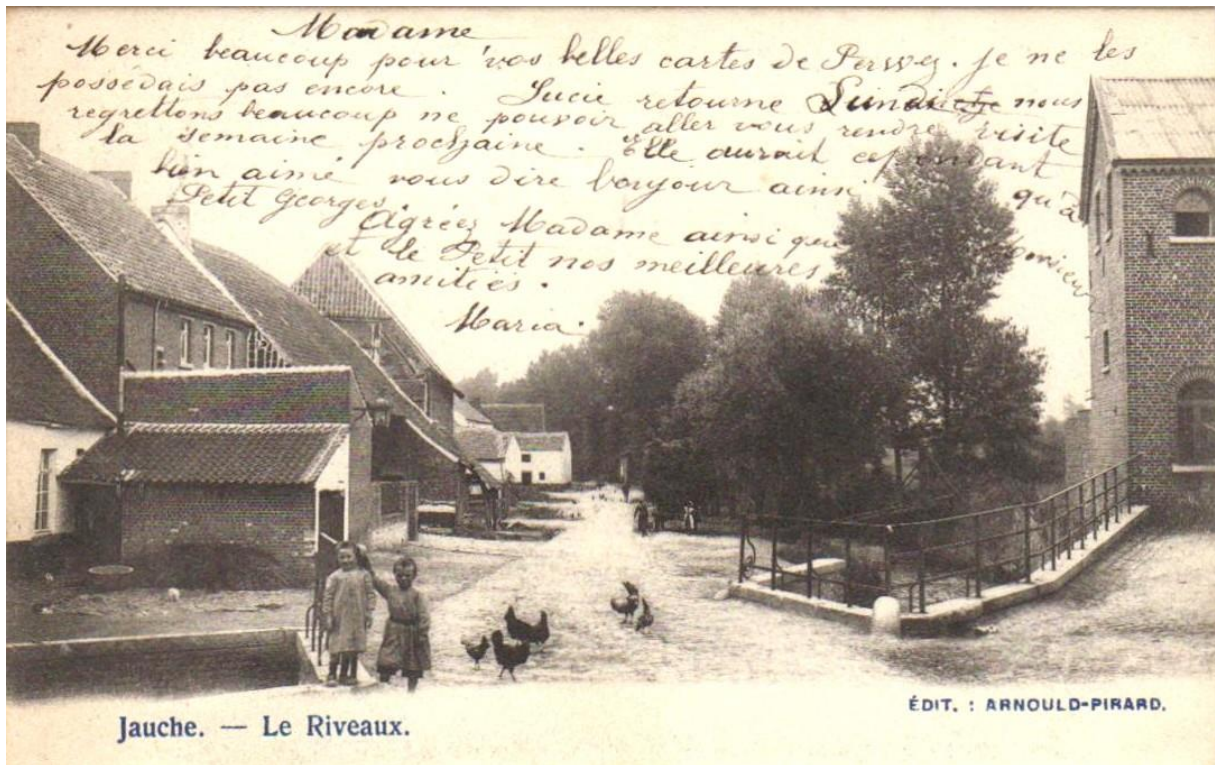 Madame
Merci beaucoup pour vos belles cartes de Perwez. je ne les
possédais pas encore. Lucie retourne Lundi et nous
regrettons beaucoup ne pouvoir aller vous rendre visite
la semaine prochaine. Elle aurait cependant
bien aimé vous dire bonjour ainsi qu'à
Petit Georges.
Agréez Madame ainsi que Monsieur
et le Petit nos meilleures
amitiés.
Maria.
Jauche. — Le Riveaux.
ÉDIT. : ARNOULD-PIRARD.